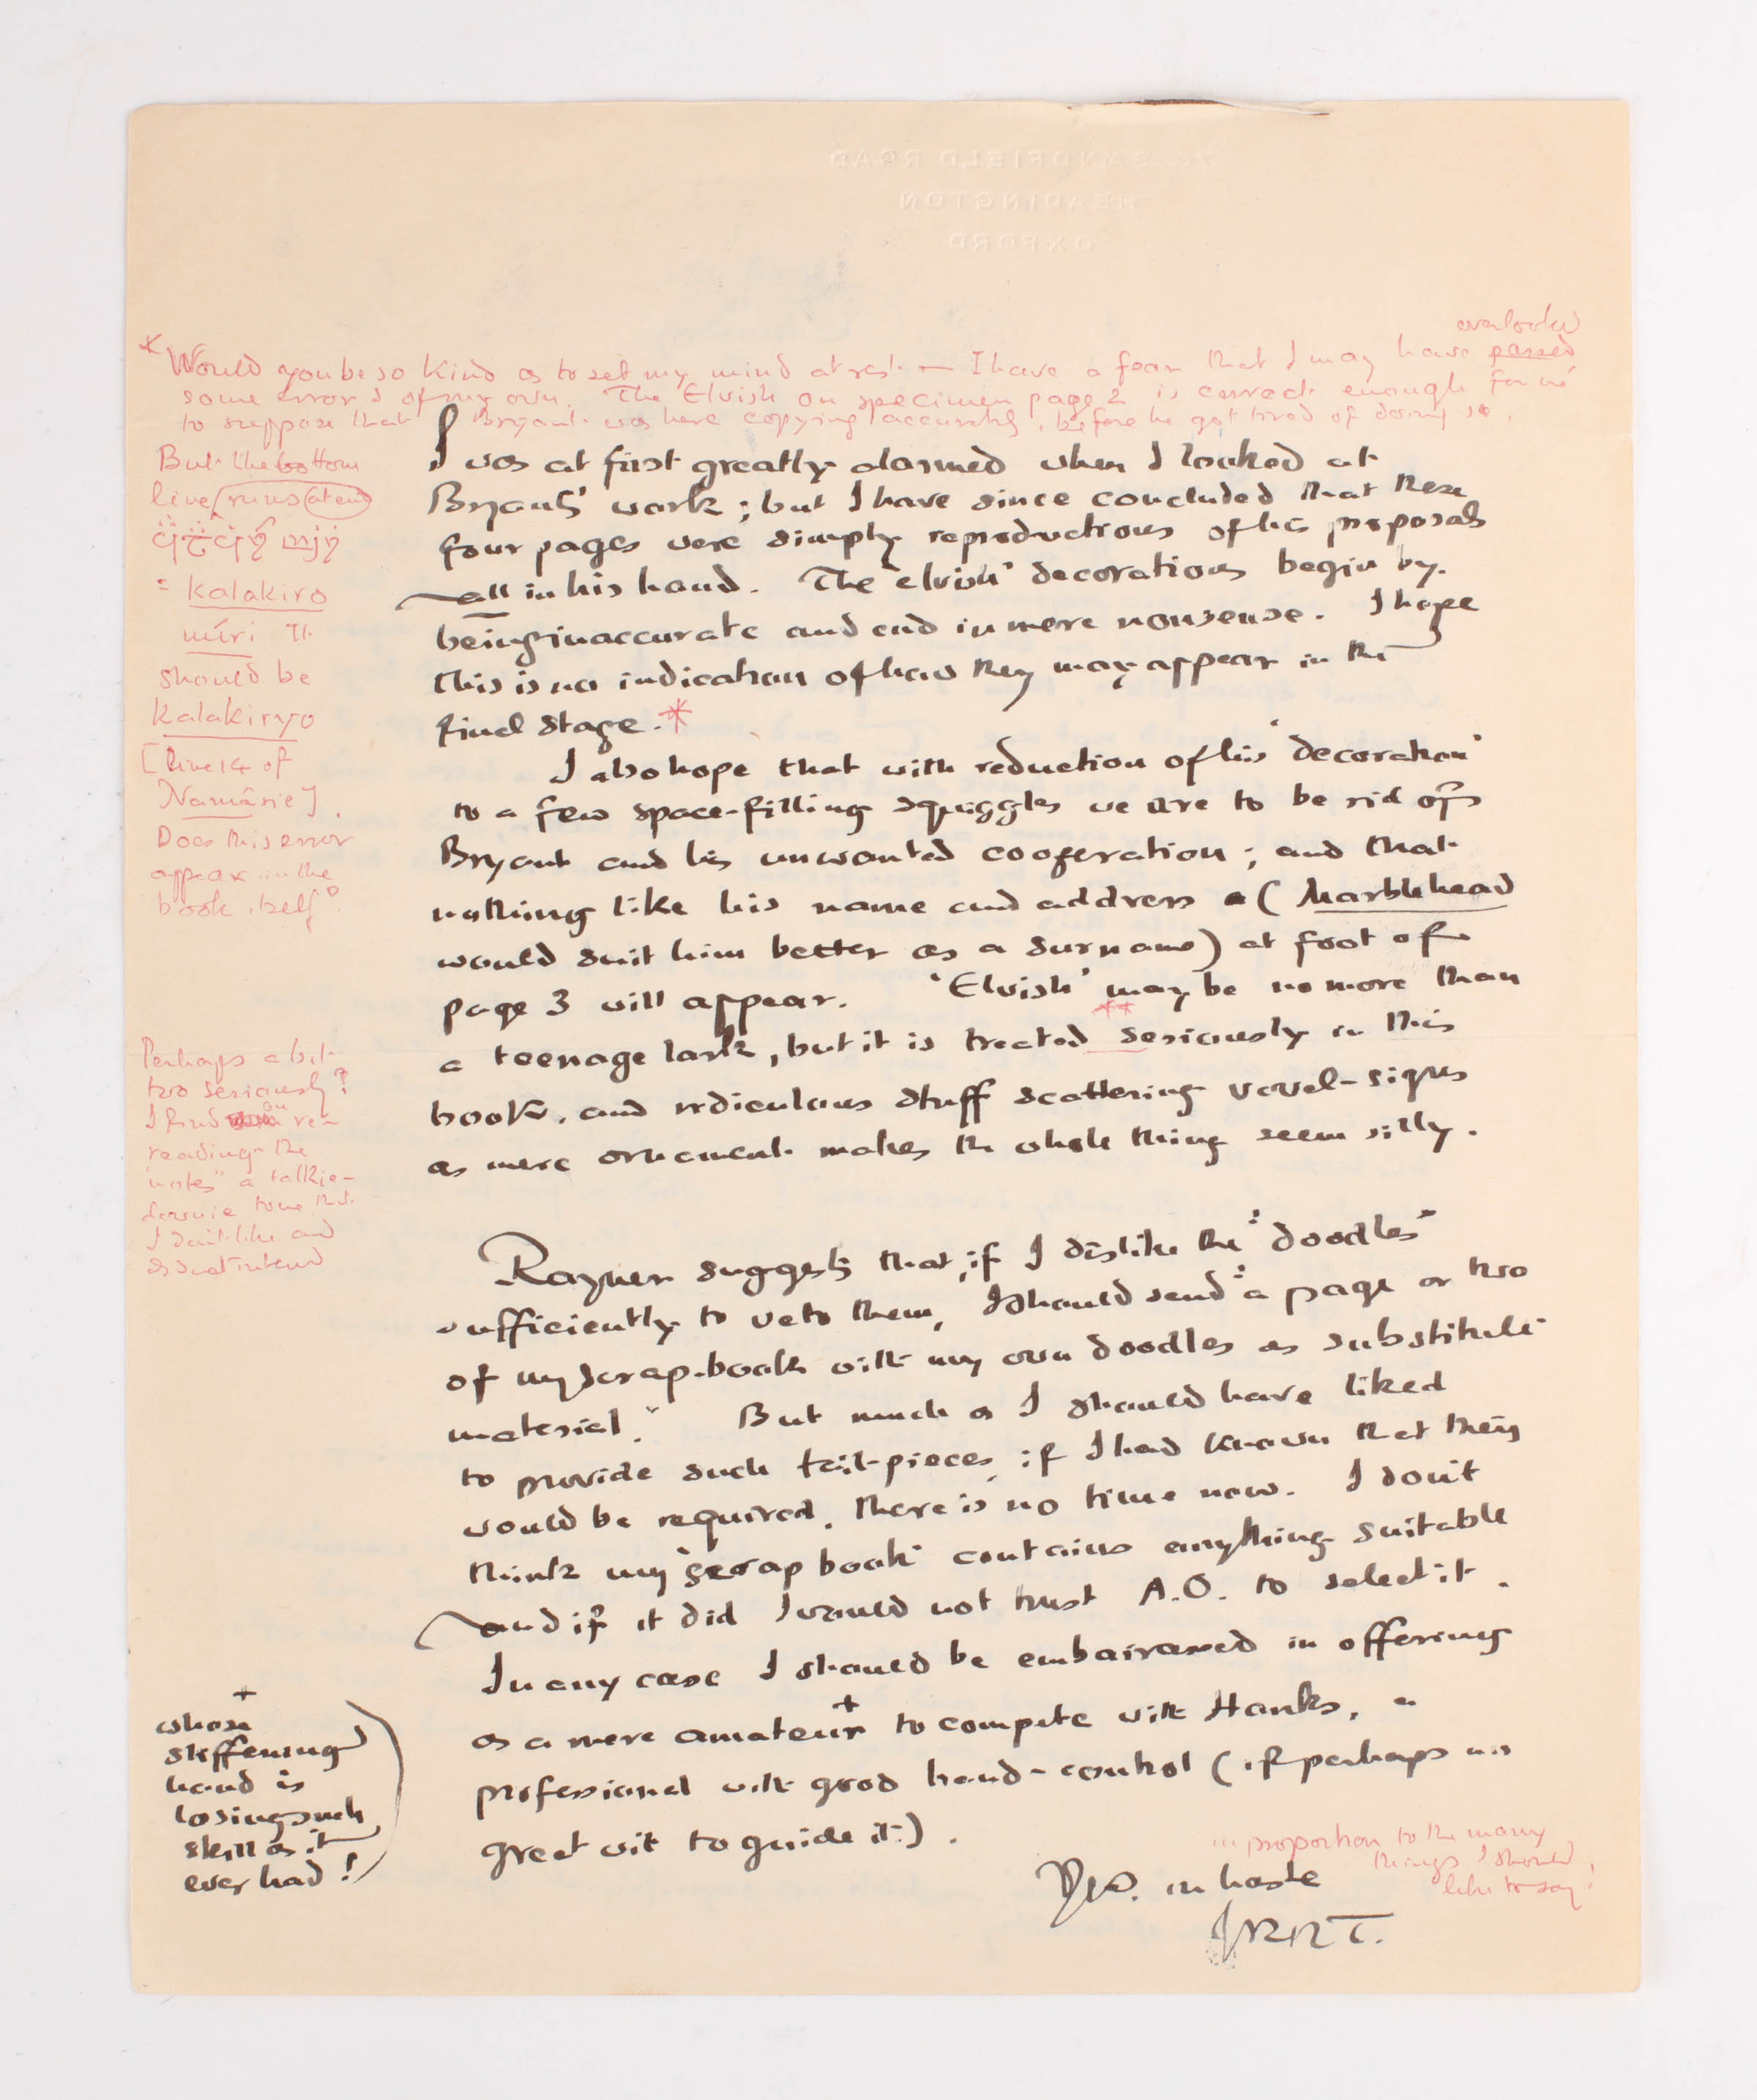 76 SANDFIELD ROAD
HEADINGTON
OXFORD
overlooked
* Would you be so kind as to set my mind at rest — I have a fear that I may have passed
some error of my own. The Elvish on specimen page 2 is correct enough for me
to suppose that Bryant was here copying accurately, before he got tired of doing so.
But the bottom
line runs at end
= Kalakiro
míri It
should be
Kalakiryo
[line 14 of
Namárie].
Does this error
appear in the
book itself?
I was at first greatly alarmed when I looked at
Bryant's work; but I have since concluded that these
four pages were simply reproductions of his proposals
all in his hand. The 'elvish' decorations begin by
being inaccurate and end in mere nonsense. I hope
this is no indication of how they may appear in the
final stage. *
I also hope that with reduction of his 'decoration'
to a few space-filling squiggles we are to be rid of
Bryant and his unwanted cooperation; and that
nothing like his name and address (Marblehead
would suit him better as a surname) at foot of
page 3 will appear. 'Elvish' may be no more than
a teenage lark, but it is treated ** seriously in this
book, and ridiculous stuff scattering vowel-signs
as mere ornament makes the whole thing seem silly.
Perhaps a bit
too seriously?
I find on re-
reading the
"notes" a
tone that
I don't like and
did not intend
Rayner suggests that, if I dislike the "doodles"
sufficiently to veto them, I should send "a page or two
of my scrap-book with my own doodles as substitute
material." But much as I should have liked
to provide such tail-pieces, if I had known that they
would be required, there is no time now. I don't
think my 'scrap book' contains anything suitable
and if it did I would not trust A.O. to select it.
In any case I should be embarrassed in offering
as a mere amateur + to compete with Hanks, a
professional with good hand-control (if perhaps no
great wit to guide it).
+
whose
stiffening
hand is
losing such
skill as it
ever had!
Yrs. in haste
in proportion to the many
things I should
like to say!
JRRT.